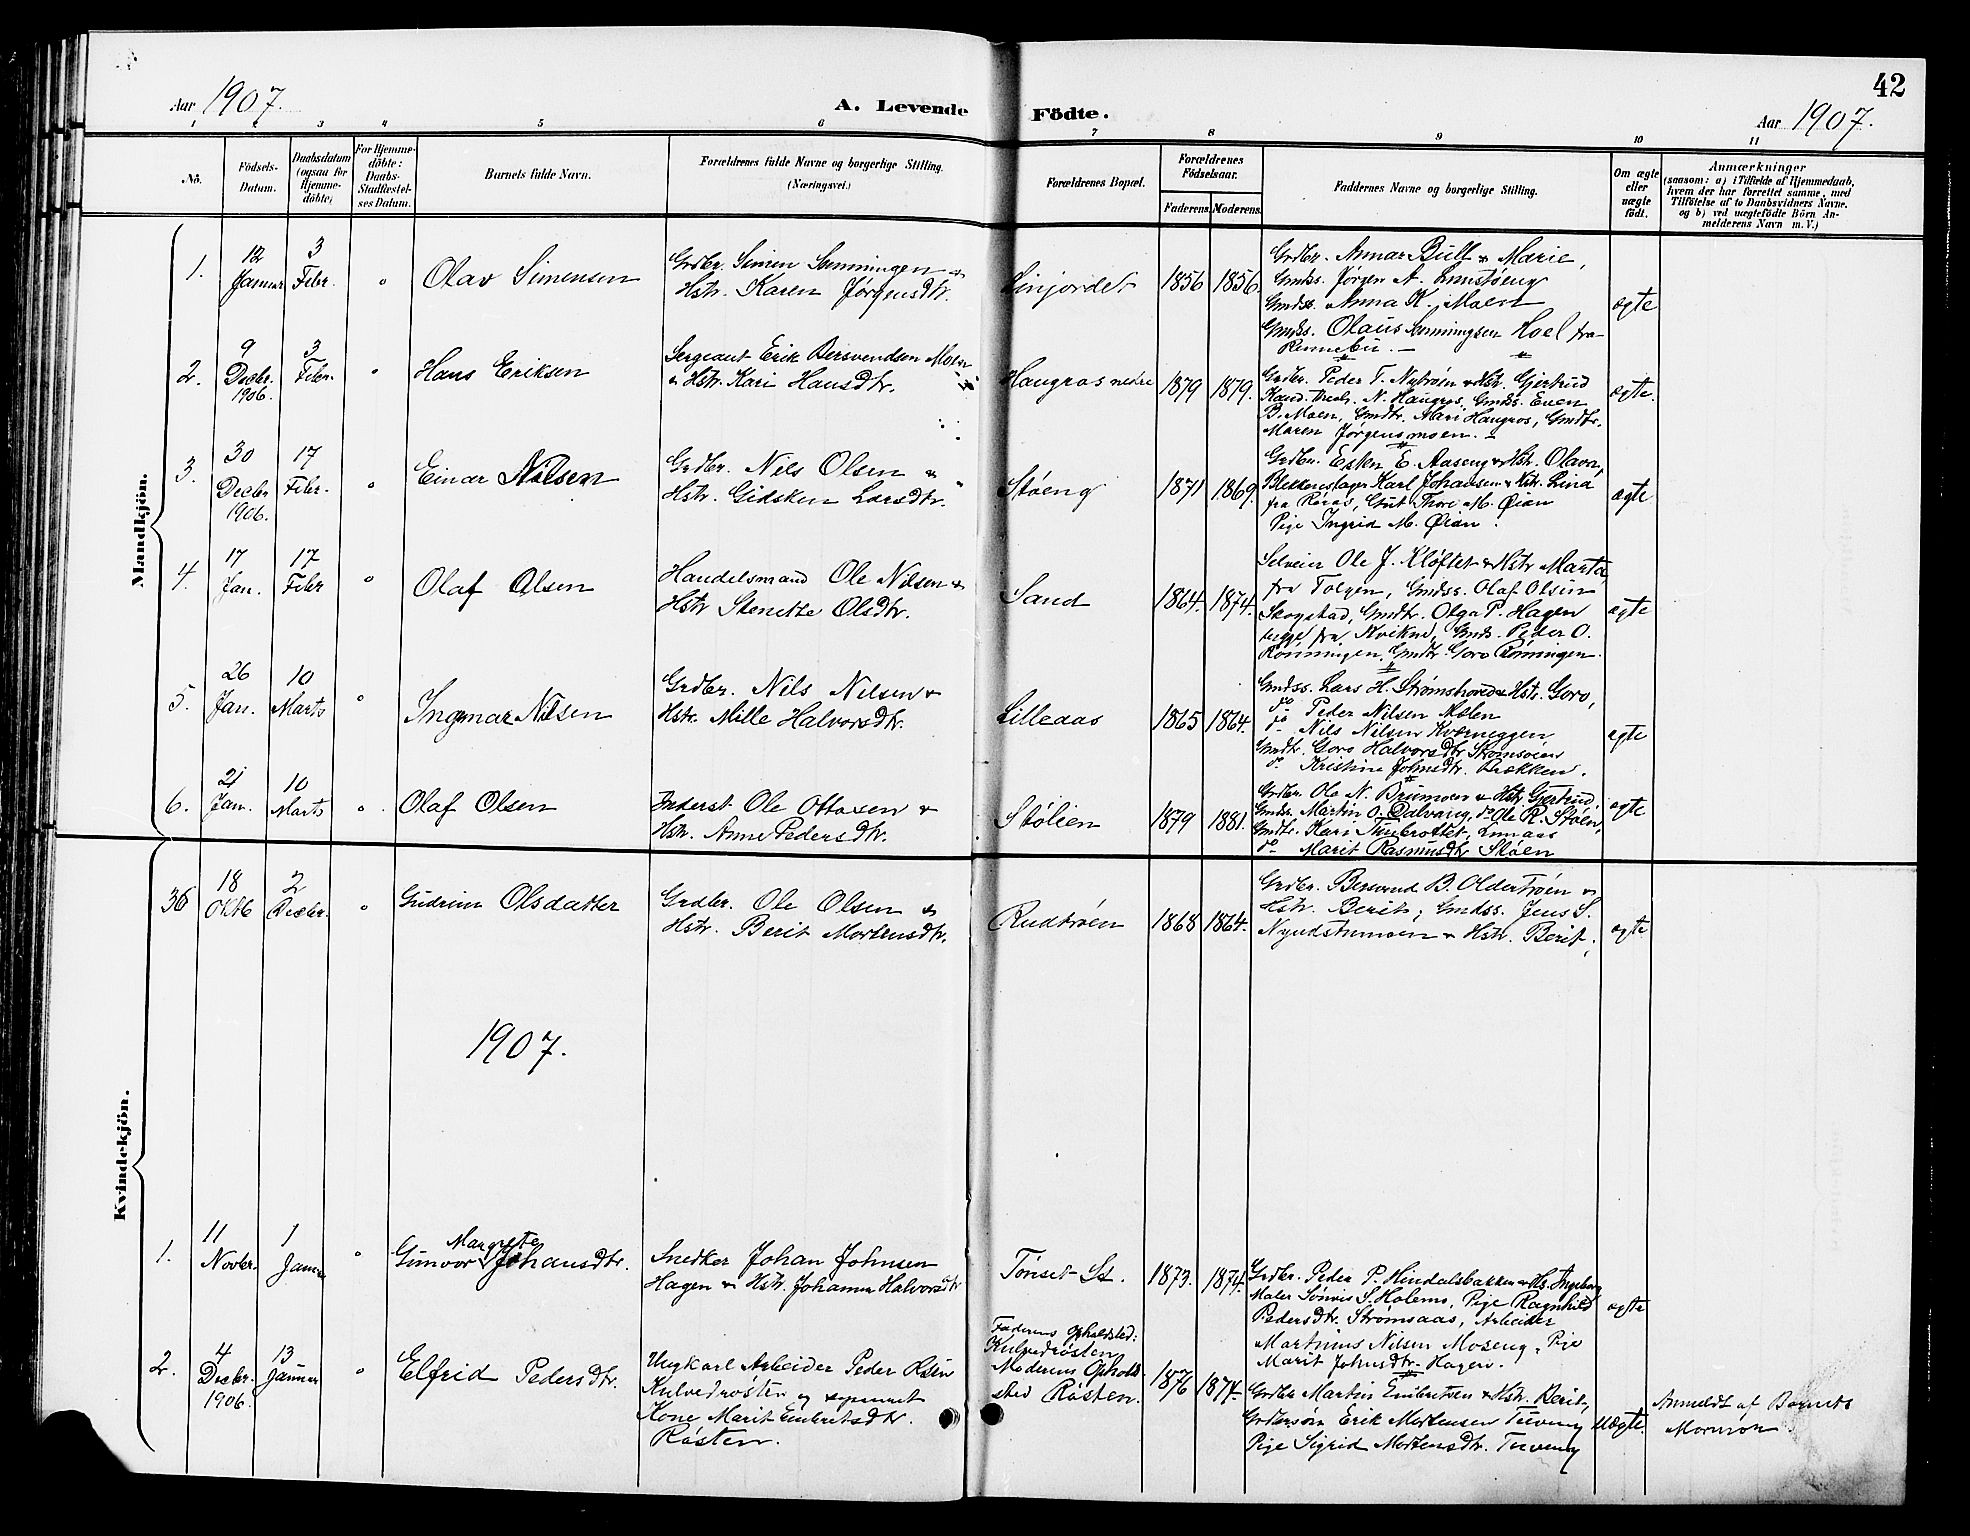 42
Aar 1907.
A. Levende Födte.
Aar 1907.
1 2 3 4 5 6 7 8 9 10 11
No.
Födsels-
Datum.
Daabsdatum
(ogsaa for
Hjemme-
döbte)
For Hjemme-
döbte:
Daabs-
Stadfæstel-
ses Datum.
Barnets fulde Navn.
Forældrenes fulde Navne og borgerlige Stilling.
(Næringsvei.)
Forældrenes Bopæl.
Forældrenes
Födselsaar.
Faderens. Moderens.
Faddernes Navne og borgerlige Stilling.
Om ægte
eller
uægte
födt.
Anmærkninger
(saasom: a) i Tilfælde af Hjemmedaab,
hvem der har forrettet samme, med
Tilföielse af to Daabsvidners Navne.
og b) ved uægtefödte Börn An-
melderens Navn m. V.)
Mandkjön.
1.
12
Januar
3
Febr.
Olav Simensen
Grdbr. Simen
Hstr. Karen Jørgensdtr.
Linjordet
1856 1856.
Grdbr. Annar Bull & Marie,
Gmdss. Jørgen A.
Gmdss. Anna K. Moen
Gmdss. Olaus Hoel fra
Rennebu.
ægte
2.
9
Decbr.
1906
3
Febr.
Hans Eriksen
Sergeant Erik Bersvendsen Moen
& Hstr. Kari Hansdtr.
Haugros nedre
1879 1879.
Grdbr. Peder T. Nytrøen & Hstr. Gjertrud
N. Haugros, Gmdss. Even
B. Moen, Gmdtr. Mari Haugros, Gmdtr.
Maren Jørgensmoen.
ægte.
3.
30
Decbr
1906.
17
Febr.
Einar Nilsen
Grdbr. Nils Olsen &
Hstr. Gidsken Larsdtr.
Støeng
1871 1869.
Grdbr. Esten E. Aaseng & Hstr. Olava,
Blikkenslager Karl Johansen & Hstr. Lina
fra Røros, Gut Thore M. Øian
Pige Ingrid M. Øian.
ægte
4.
17
Jan.
17
Febr
Olaf Olsen
Handelsmand Ole Nilsen &
Hstr Stenette Olsdtr.
Sand
1864. 1874.
Selveier Ole J. Kløftet & Hstr Marta,
fra Tolgen, Gmdss. Olaf Olsen
Skogstad, Gmdtr. Olga P. Hagen
begge fra Kvikne, Gmds. Peder O.
Rønningen, Gmdtr. Goro Rønningen.
ægte
5.
26
Jan.
10
Marts
Ingmar Nilsen
Grdbr. Nils Nilsen &
Hstr. Mille Halvorsdtr.
Lilleaas
1865 1864.
Gmdss. Lars H. Strømshoved & Hstr. Goro,
do Peder Nilsen Moen
do Nils Nilsen Kverneggen
Gmdtr. Goro Halvorsdtr Strømsøien
do Kristine Johnsdtr. Bakken.
ægte
6.
21
Jan.
10
Marts
Olaf Olsen
Inderst Ole Ottosen &
Hstr. Anne Pedersdtr.
Stølien
1879 1881.
Grdbr. Ole N. Brumoen & Hstr Gjertrud,
Gmds. Martin O. Dalvang, do Ole R. Støen,
Gmdtr. Kari
do Marit Rasmusdtr Støen
ægte
Kvindekjön.
36
18
Oktb
2
Decbr.
Gudrun Olsdatter
Grdbr. Ole Olsen &
Hstr. Berit Mortensdtr.
Rudtrøen
1868 1864.
Grdbr. Bersvend B. Oldertrøen &
Hstr. Berit, Gmdss. Jens S.
Nyndstumoen & Hstr. Berit,
ægte
1907.
1.
11
Novbr.
1
Januar
Margrete
Gunvor Johansdtr.
Snedker Johan Johnsen
Hagen & Hstr. Johanne Halvorsdtr
Tønset St.
1873. 1874.
Grdbr. Peder P. Hindalsbakken & Hs. Ingeborg
Maler Sønvis S. Holemo, Pige Ragnhild
Pedersdtr. Strømsaas, Arbeider
Martinus Nilsen Moseng, Pige
Marit Johnsdtr. Hagen.
ægte
2.
4
Decbr.
1906.
13
Januar
Elfrid Pedersdtr.
Ungkarl Arbeider Peder Olsen
Kulvedrøsten og separeret
Kone Marit Embretsdtr.
Røsten.
Faderens Opholdsted:
Kulvedrøsten
Moderens Ophold
sted Røsten.
1876 1874.
Grdbr Martin Embretsen & Hstr. Berit,
Grdbrsøn Erik Mortensen Tuveng
Pige Sigrid Mortensdtr. Tuveng
uægte.
Anmeldt af Barnets
Mormor